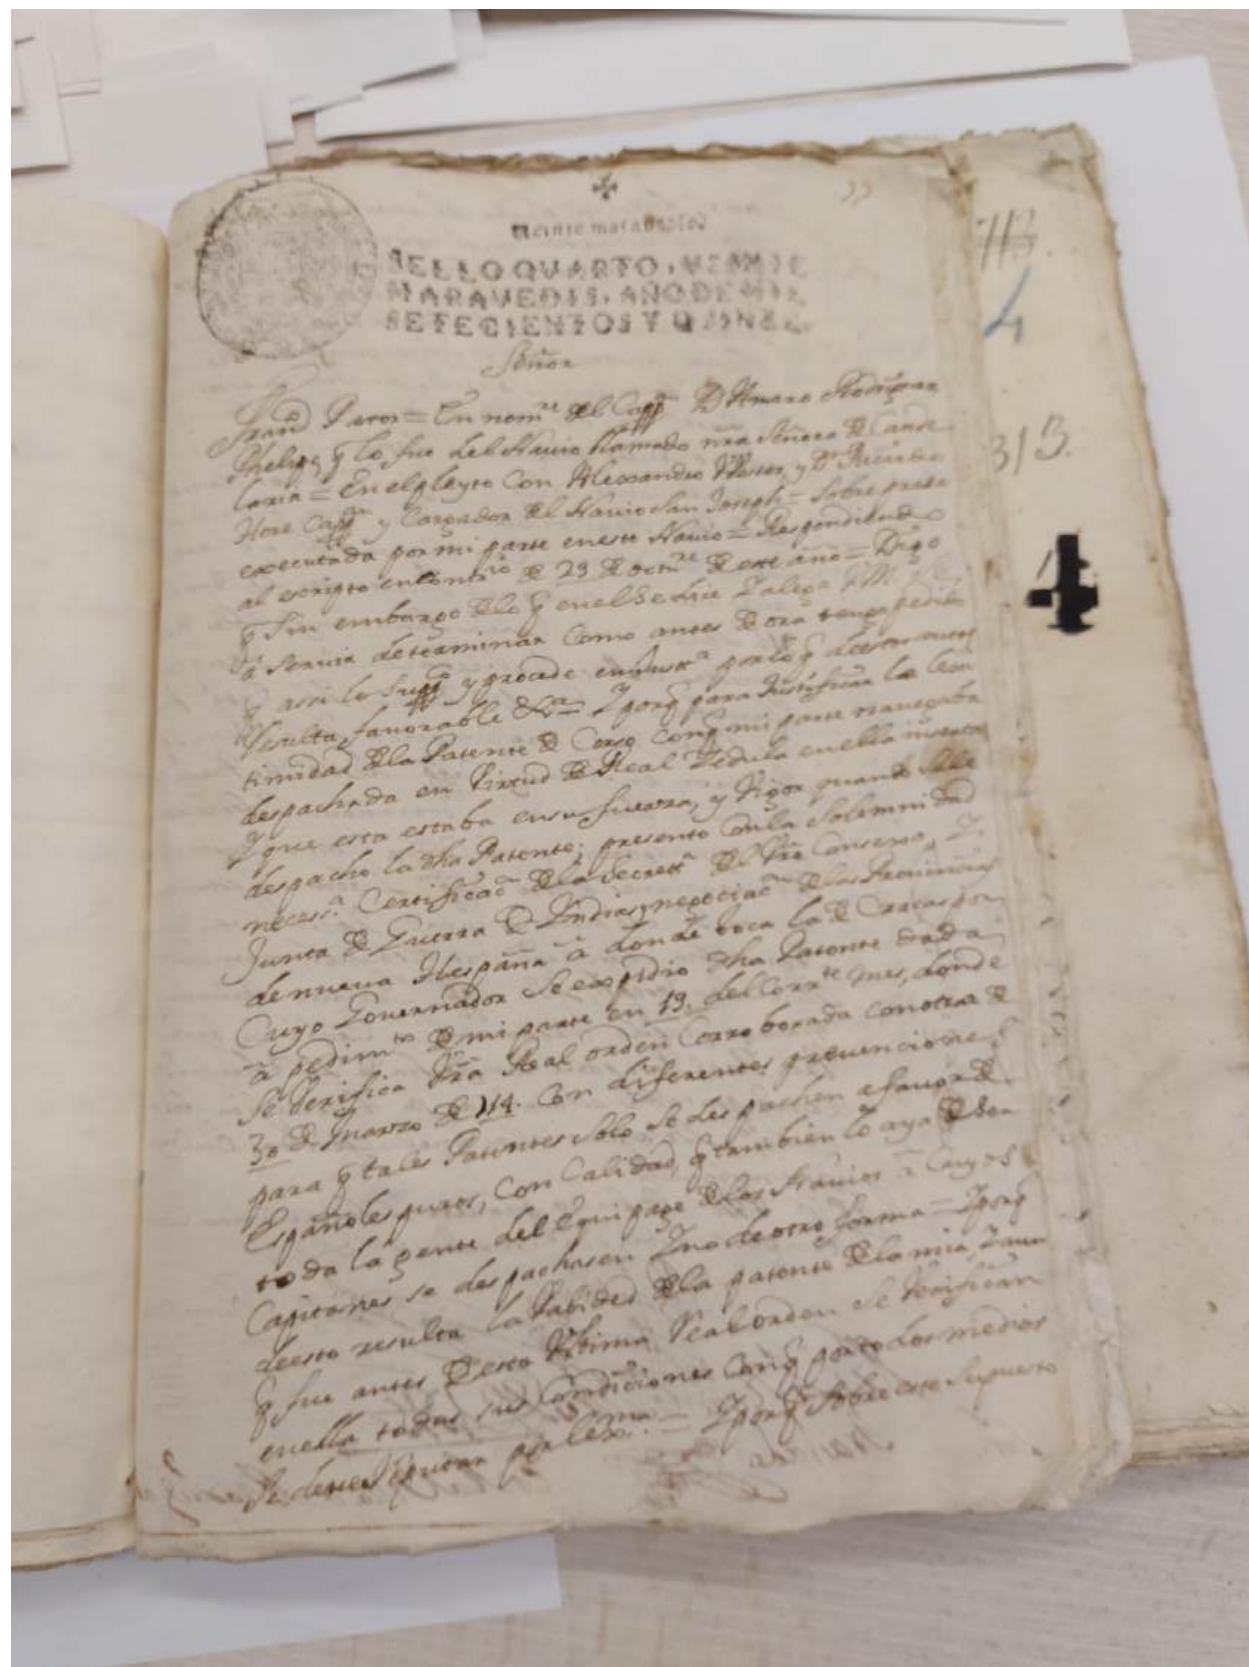 33
Veinte maravedis
SELLO QVARTO, VEINTE
MARAVEDIS, AÑO DE MIL
SETECIENTOS Y QUINZE.
Señor
en nom.e del Capp.n D. Alvaro Rodriguez
Phelipe, q lo fue del Navio llamado nra Señora de Cande
laria = En el pleyto Con Alexandro y D.n Ricardo
Hore Capp.n y Cargador del Navio San Joseph = Sobre presa
executada por mi parte en este Navio = Respondiendo
al escripto en Contr.io de 29 de oct.re de este año = Digo
q sin embargo de lo q en el se dice Y alega V.M. se
a servir determinar Como antes de ora tengo pedido
q assi lo supp.co y procede en Just.a por lo q de estos autos
resulta favorable &.a = Y porq para Justificar la lexi
timidad de la Patente de Corso Con q mi parte navegaba
despachada en Virtud de Real Zedula en ella inserta
Y que esta estaba en su fuerza, y Vigor quando se le
despacho la dha Patente; presento Con la solemnidad
necess.a Certificac.n de la Secret.a del Vro Consexo, Y
Junta de Guerra de Yndias, negociac.n de las Provincias
de nueva Hespaña à donde toca la de Caracas por
Cuyo Governador se expidio dha Patente dada
à pedim.to de mi parte en 19. del Corr.te mes, donde
se Verifica Vra Real orden Corroborada con otra de
30 de Marzo de 714. Con diferentes prevenciones
para q tales Patentes solo se despachen a favor de
Españoles puros, Con Calidad, q tambien lo aya de ser
toda la gente del Equipage de los Navios à Cuyos
Capitanes se despachasen Y no de otra forma = Y porq
de esto resulta la Validad de la patente de la mia, Y aun
q fue antes de esta Vltima Real orden se Verifican
en ella todas sus Condiciones Con q por todos medios
se deve Reputar por lex.ma = Y porq sobre este supuesto
713.
4
313.
4